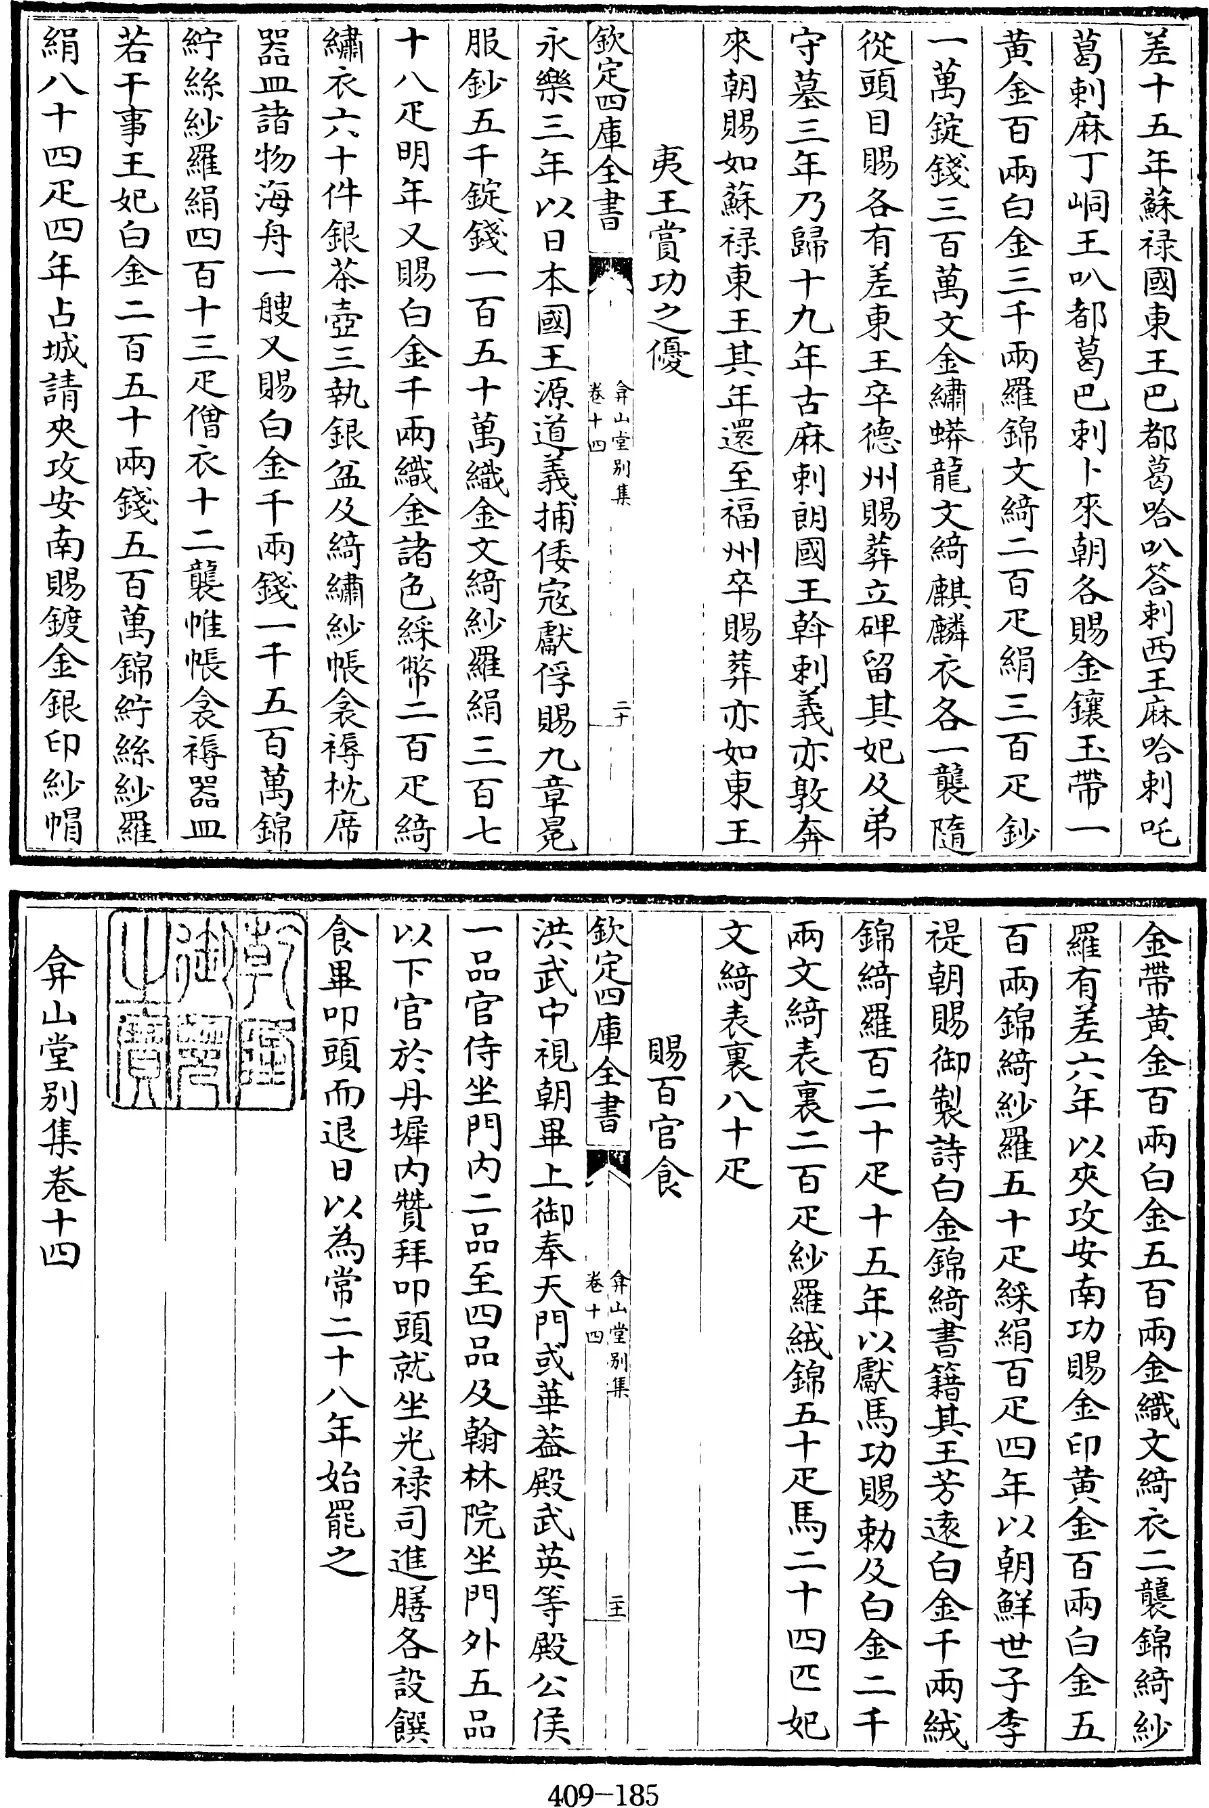 差十五年蘇禄國東王巴都葛哈叭答剌西王麻哈剌吒
葛剌麻丁峒王叭都葛巴剌卜來朝各賜金鑲玉帶一
黄金百兩白金三千兩羅錦文綺二百疋絹三百疋鈔
一萬錠錢三百萬文金繡蟒龍文綺麒麟衣各一襲隨
從頭目賜各有差東王卒德州賜葬立碑留其妃及弟
守墓三年乃歸十九年古麻剌朗國王斡剌義亦敦奔
來朝賜如蘇禄東王其年還至福州卒賜葬亦如東王
夷王賞功之優
欽定四庫全書
弇山堂别集
卷十四
二十
永樂三年以日本國王源道義捕倭寇獻俘賜九章冕
服鈔五千錠錢一百五十萬織金文綺紗羅絹三百七
十八疋明年又賜白金千兩織金諸色綵幣二百疋綺
繡衣六十件銀茶壺三執銀盆及綺繡紗帳衾褥枕席
器皿諸物海舟一艘又賜白金千兩錢一千五百萬錦
紵絲紗羅絹四百十三疋僧衣十二襲帷帳衾褥器皿
若干事王妃白金二百五十兩錢五百萬錦紵絲紗羅
絹八十四疋四年占城請夾攻安南賜鍍金銀印紗帽
金帶黄金百兩白金五百兩金織文綺衣二襲錦綺紗
羅有差六年以夾攻安南功賜金印黄金百兩白金五
百兩錦綺紗羅五十疋綵絹百疋四年以朝鮮世子李
禔朝賜御製詩白金錦綺書籍其王芳遠白金千兩絨
錦綺羅百二十疋十五年以獻馬功賜勅及白金二千
兩文綺表裏二百疋紗羅絨錦五十疋馬二十四匹妃
文綺表裏八十疋
賜百官食
欽定四庫全書
弇山堂别集
卷十四
二十一
洪武中視朝畢上御奉天門或華葢殿武英等殿公侯
一品官侍坐門内二品至四品及翰林院坐門外五品
以下官於丹墀内贊拜叩頭就坐光禄司進膳各設饌
食畢叩頭而退日以為常二十八年始罷之
乾隆
御覽
之寶
弇山堂别集卷十四
409-185